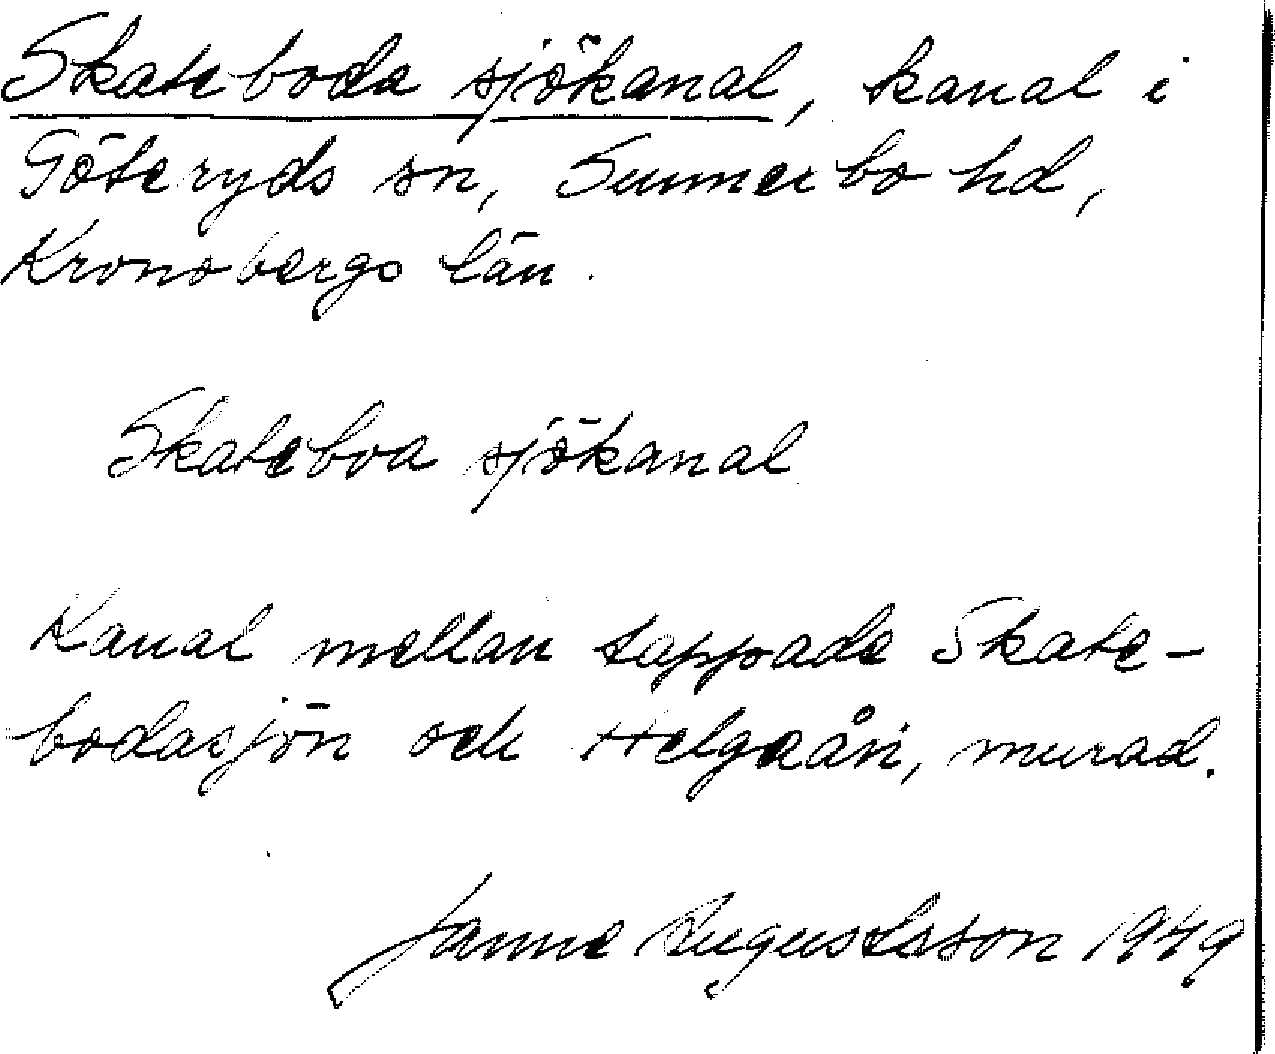 Skateboda sjökanal, kanal i
Göteryds sn, Sunnerbo hd,
Kronobergs län.
Skateboa sjökanal
Kanal mellan tappade Skate-
bodasjön och Helgeån, murad.
Janne Augustsson 1949